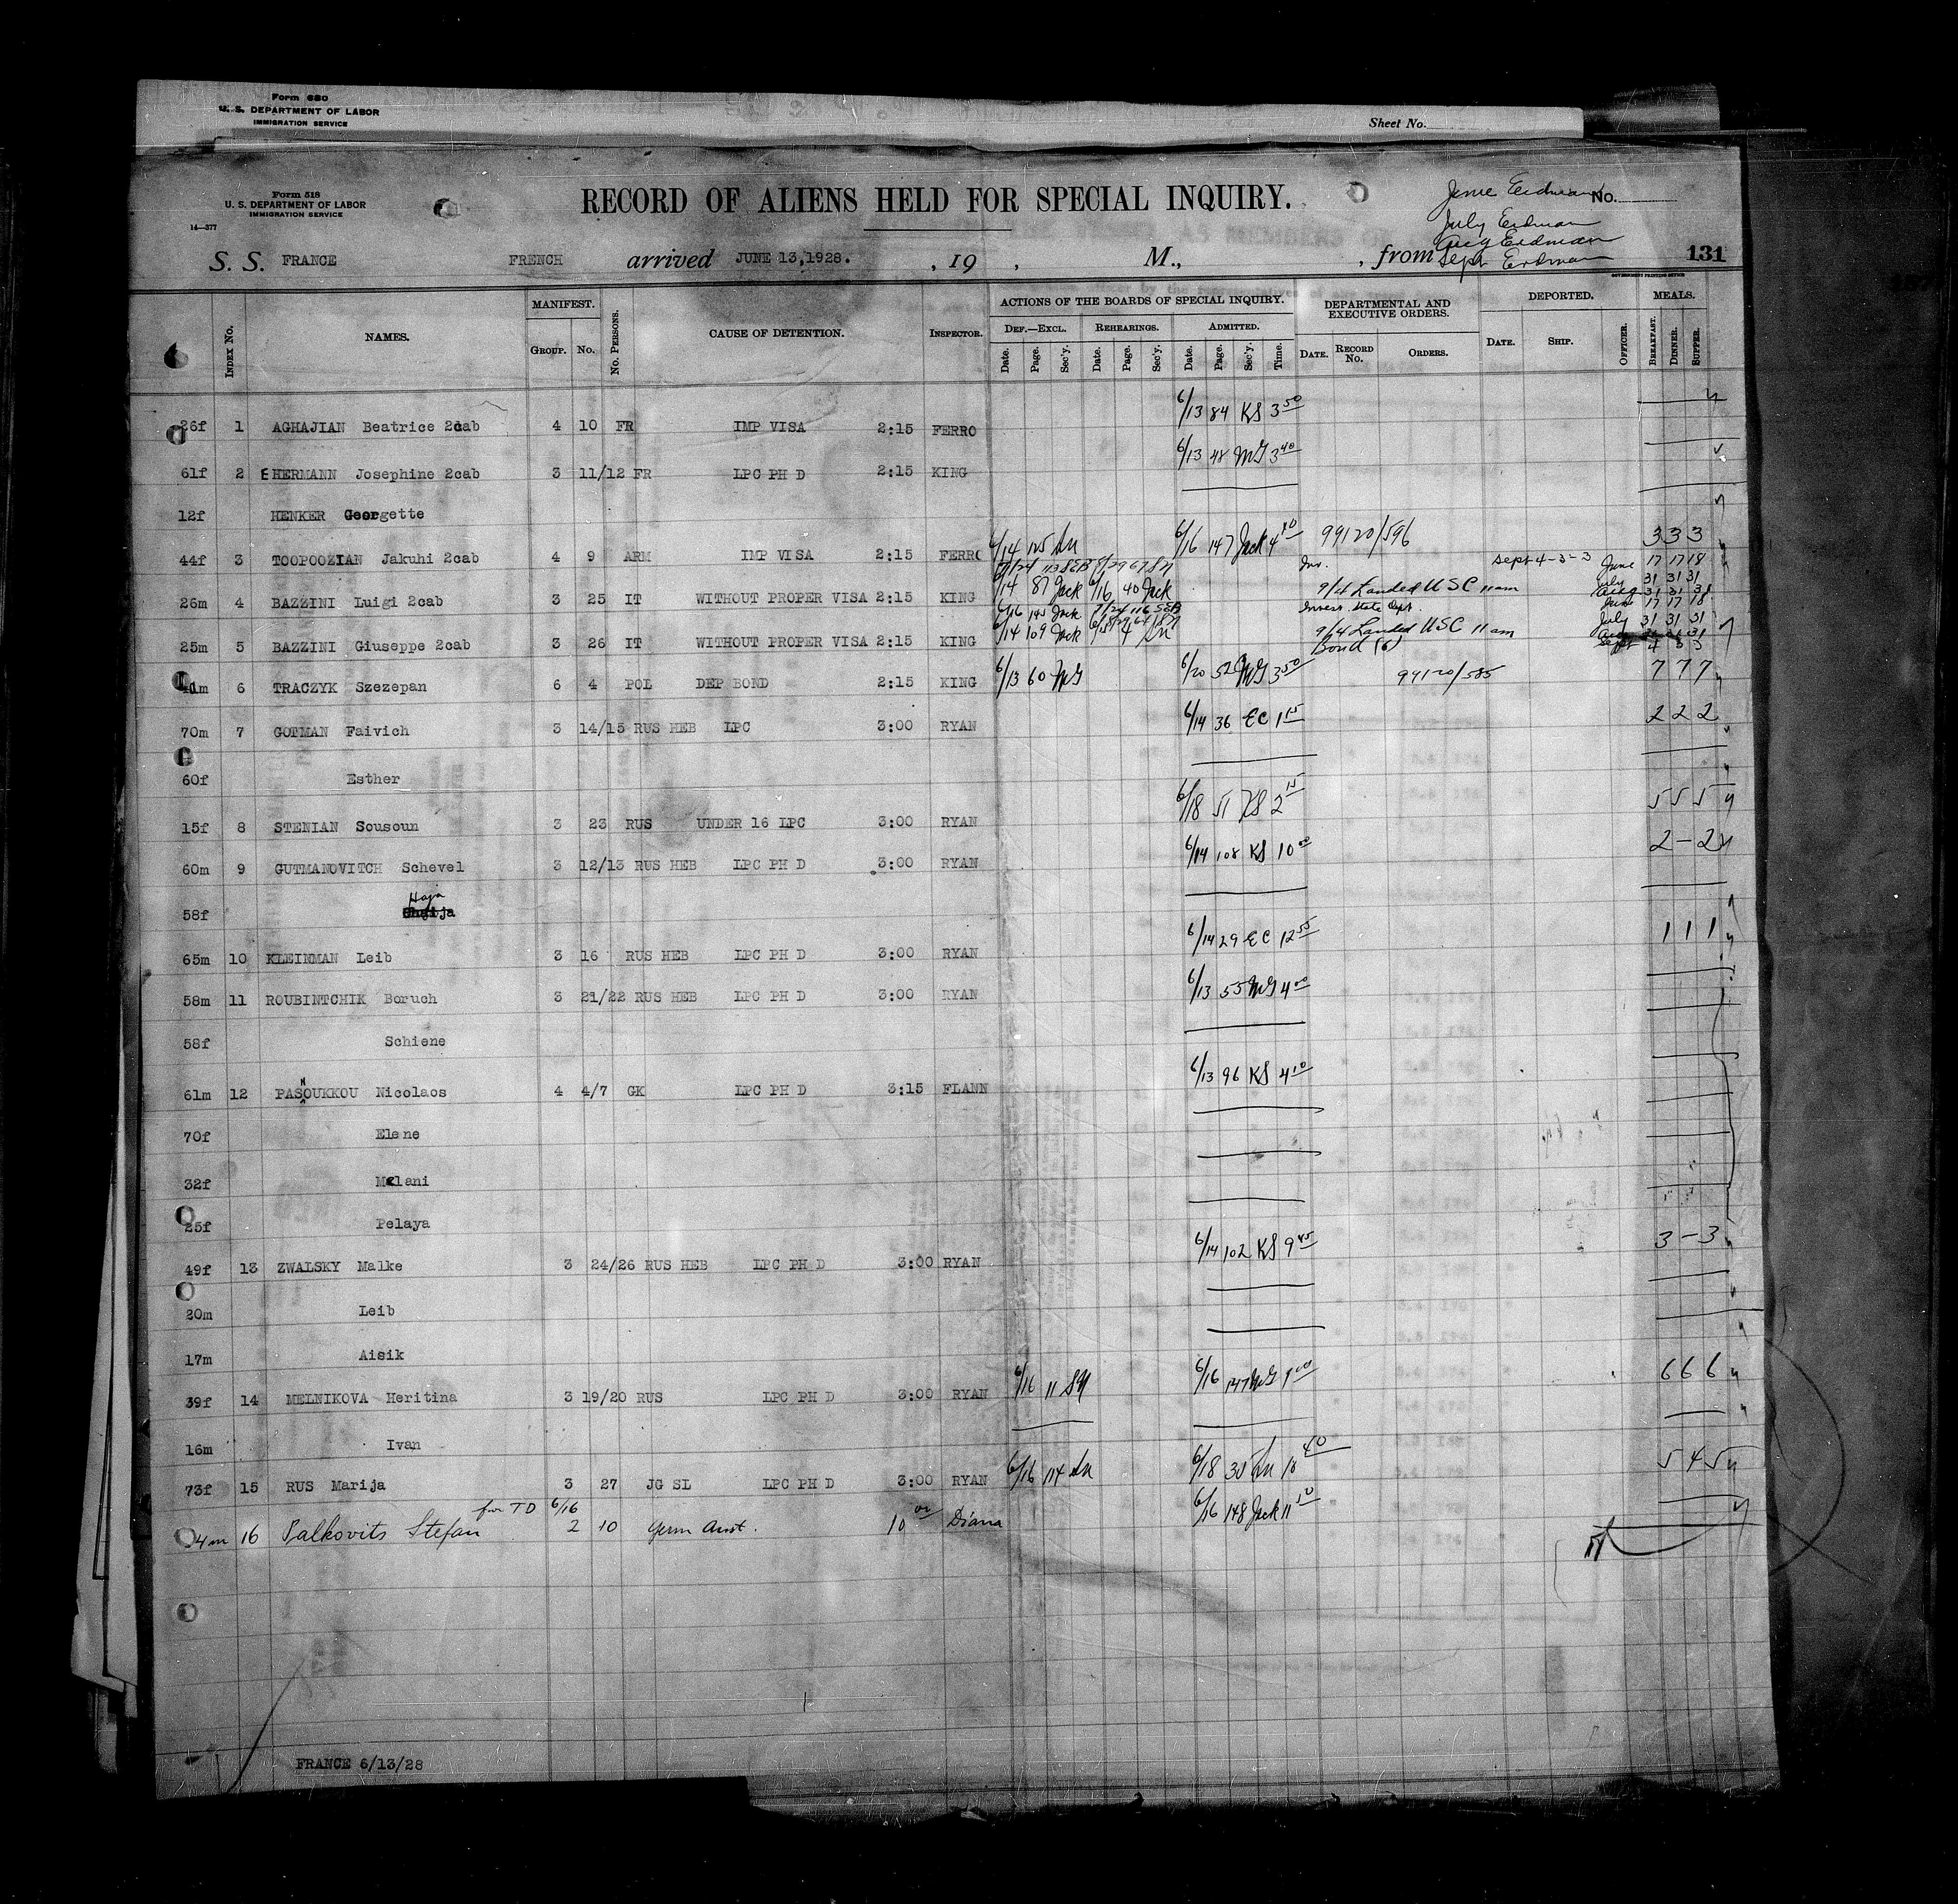 Form 680
U. S. DEPARTMENT OF LABOR
IMMIGRATION SERVICE
Sheet No.
Form 518
U. S. DEPARTMENT OF LABOR
IMMIGRATION SERVICE
14—377
RECORD OF ALIENS HELD FOR SPECIAL INQUIRY.
June Erdman No.
July Erdman
Aug Erdman
Sept Erdman
S. S. FRANCE FRENCH arrived JUNE 13,1928. , 19 , M., , from 131
GOVERNMENT PRINTING OFFICE
INDEX No. NAMES. MANIFEST. GROUP. No. No. PERSONS. CAUSE OF DETENTION. INSPECTOR. ACTIONS OF THE BOARDS OF SPECIAL INQUIRY. DEPARTMENTAL AND EXECUTIVE ORDERS. DEPORTED. MEALS.
DEF.—EXCL. REHEARINGS. ADMITTED.
Date. Page. Sec'y. Date. Page. Sec'y. Date. Page. Sec'y. Time. DATE. RECORD No. ORDERS. DATE. SHIP. OFFICER. BREAKFAST. DINNER. SUPPER.
26f 1 AGHAJIAN Beatrice 2cab 4 10 FR IMP VISA 2:15 FERRO 6/13 84 KS 3 50
61f 2 EHERMANN Josephine 2cab 3 11/12 FR LPC PH D 2:15 KING 6/13 48 MG 3 40
12f HENKER Georgette
44f 3 TOOPOOZIAN Jakuhi 2cab 4 9 ARM IMP VISA 2:15 FERRO 6/14 125 6/16 147 Jack 4 40 99120/596 3 3 3
Sept 4-3-3 June 17 17 18
26m 4 BAZZINI Luigi 2cab 3 25 IT WITHOUT PROPER VISA 2:15 KING 6/14 87 Jack 6/16 40 Jack 9/4 Landed USC 11am July 31 31 31
Aug 31 31 31
6/16 145 Jack 7/24 116 SEB Invest. State Dept. June 17 17 18
25m 5 BAZZINI Giuseppe 2cab 3 26 IT WITHOUT PROPER VISA 2:15 KING 6/14 109 Jack 9/4 Landed USC 11 am July 31 31 31
Bond (6) Sept 4 3 3
41m 6 TRACZYK Szezepan 6 4 POL DEP BOND 2:15 KING 6/13 60 MG 6/20 52 MG 3 50 99120/585 7 7 7
70m 7 GOTMAN Faivich 3 14/15 RUS HEB LPC 3:00 RYAN 6/14 36 EC 1 15 2 2 2
60f Esther
15f 8 STENIAN Sousoun 3 23 RUS UNDER 16 LPC 3:00 RYAN 6/18 51 KS 2 15 5 5 5
60m 9 GUTMANOVITCH Schevel 3 12/13 RUS HEB LPC PH D 3:00 RYAN 6/14 108 KS 10 00 2 - 2
Haja
58f
65m 10 KLEINMAN Leib 3 16 RUS HEB LPC PH D 3:00 RYAN 6/14 29 EC 12 55 1 1 1
58m 11 ROUBINTCHIK Boruch 3 21/22 RUS HEB LPC PH D 3:00 RYAN 6/13 55 MG 4 00
58f Schiene
N
61m 12 PASOUKKOU Nicolaos 4 4/7 GK LPC PH D 3:15 FLANN 6/13 96 KS 4 10
70f Elene
32f Melani
25f Pelaya
49f 13 ZWALSKY Malke 3 24/26 RUS HEB LPC PH D 3:00 RYAN 6/14 102 KS 9 45 3 - 3
20m Leib
17m Aisik
39f 14 MELNIKOVA Heritina 3 19/20 RUS LPC PH D 3:00 RYAN 6/16 11 SM 6/16 147 MG 1 00 6 6 6
16m Ivan
73f 15 RUS Marija 3 27 JG SL LPC PH D 3:00 RYAN 6/16 114 6/18 35 10 40 5 4 5
for TD 6/16
4m 16 Palkovits Stefan 2 10 Germ Aust. 10 00 Diana 6/16 148 Jack 11 50
FRANCE 6/13/28